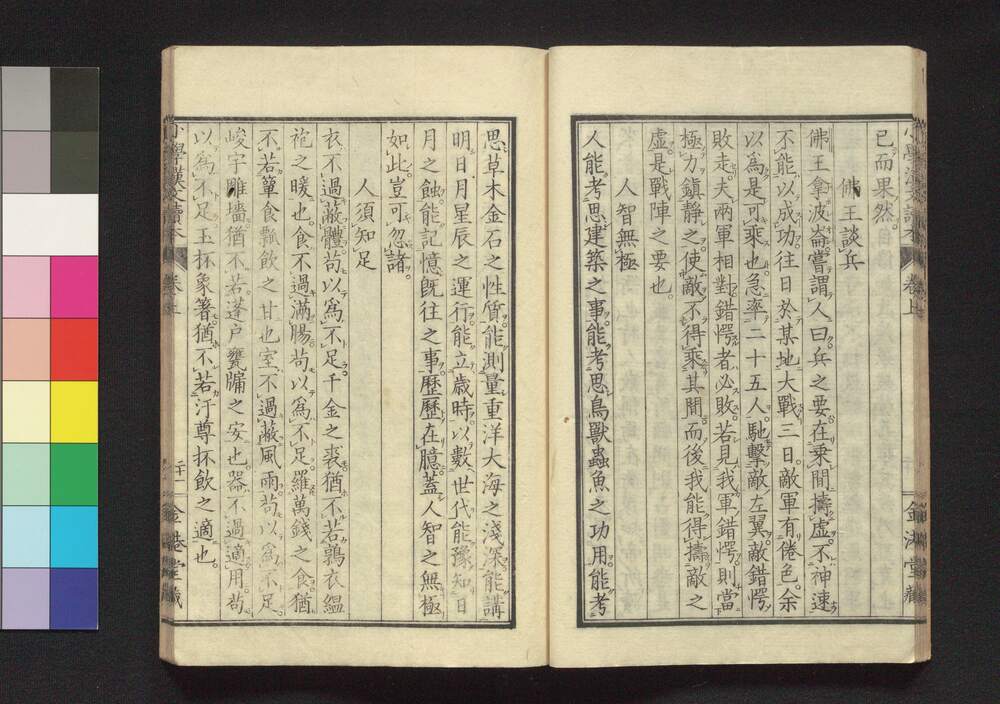 已而果然。
佛王談兵
佛王拿波崙嘗謂人曰兵之要在乘間擣虛不神速
不能以成功往日於某地大戰三日敵軍有倦色余
以為是可乘也急率二十五人馳擊敵左翼敵錯愕
敗走夫兩軍相對錯愕者必敗若見我軍錯愕則當
極力鎮靜之使敵不得乘其間而後我能得擣敵之
虛是戰陣之要也。
人智無極
人能考思建築之事能考思鳥獸蟲魚之功用能考
思草木金石之性質能測量重洋大海之淺深能講
明日月星辰之運行能立歲時以數世代能豫知日
月之蝕能記憶既往之事歷歷在臆蓋人智之無極
如此豈可忽諸
人須知足
衣不過蔽體苟以為不足千金之裘猶不若鶉衣縕
袍之暖也食不過滿腸苟以為不足羅萬錢之食猶
不若簞食瓢飲之甘也室不過蔽風雨苟以為不足
峻宇雕墻猶不若蓬戶甕牖之安也器不過適用苟
以為不足玉抔象箸猶不若汙尊抔飲之適也。
小學漢文讀本 卷上 二十一 金港堂藏